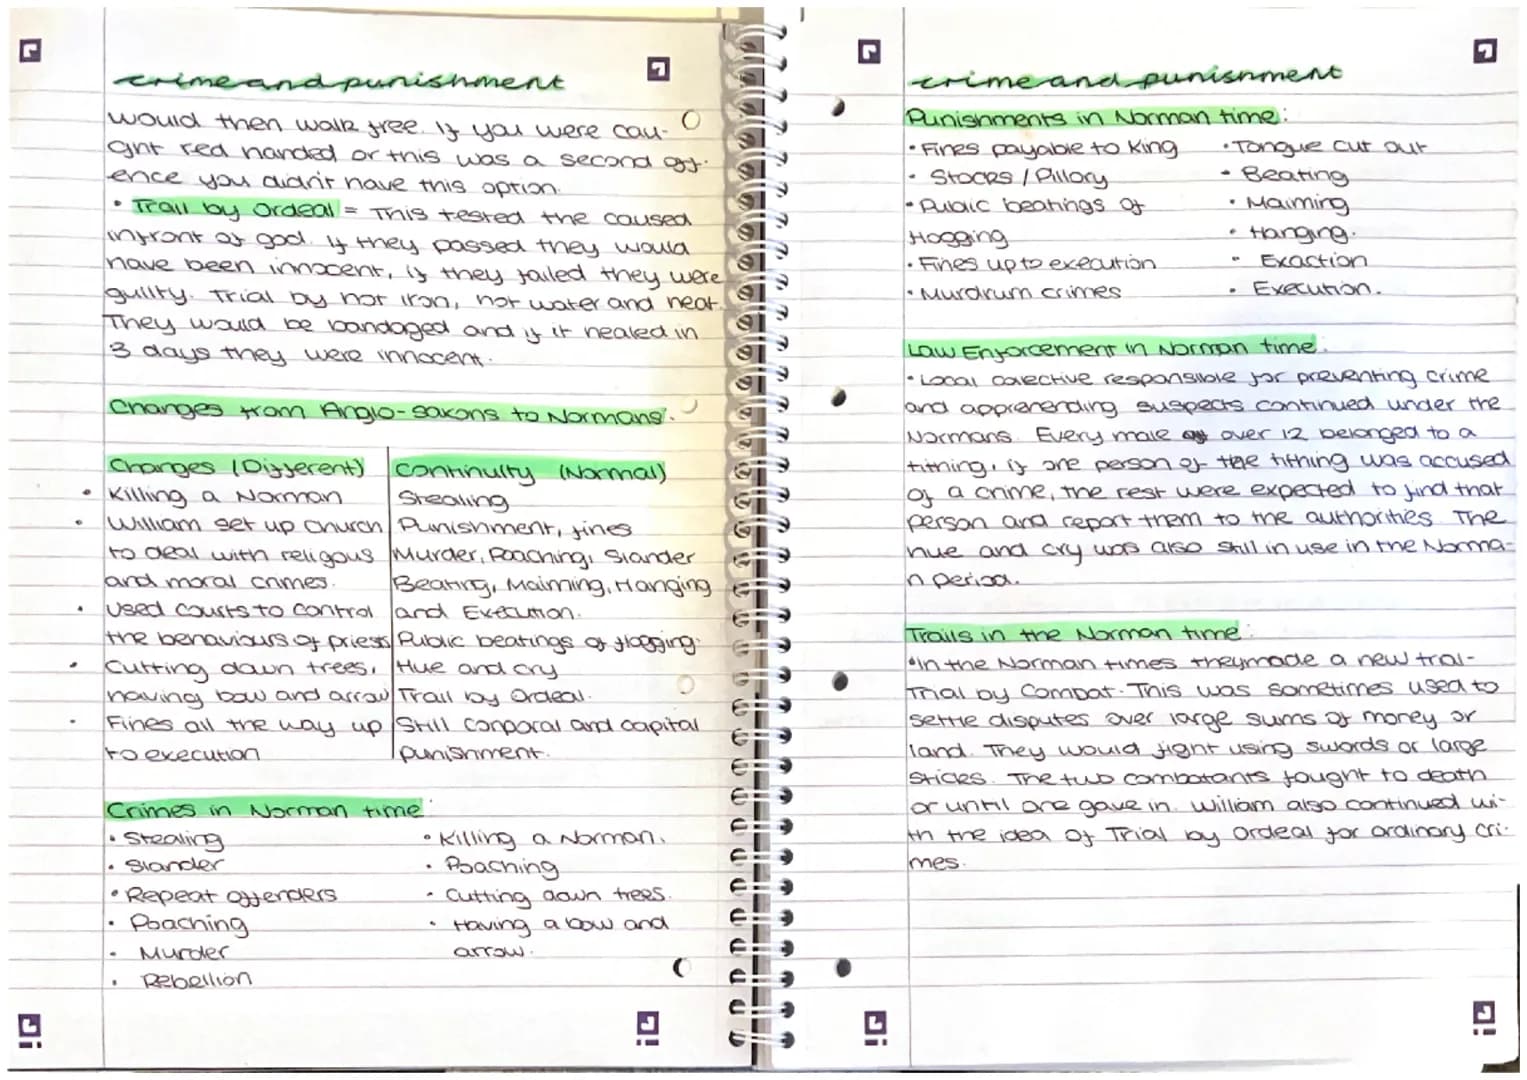 crime and punishment
would then walk free. If you were cau-
ght red handed or this was a second off-
ence you didn't have this option.
• Trail by Ordeal = This tested the caused
infront of god. If they passed they would
have been innocent, if they failed they were
guilty. Trial by hot iron, hot water and heat.
They would be bandaged and if it healed in
3 days they were innocent.
Changes from Anglo-saxons to Normans:
Changes (Different)
• Killing a Norman
• William set up church
to deal with religous
and moral crimes.
• Used courts to control
the behaviours of priests
• Cutting down trees,
having bow and arrow
• Fines all the way up
to execution
Continuity (Normal)
Stealing
Punishment, fines
Murder, Poaching, Slander
Beating, Maiming, Hanging
and Execution.
Public beatings of flogging.
Hue and cry
Trail by Ordeal.
Still corporal and capital
punishment.
Crimes in Norman time:
• Stealing
• Slander
• Repeat offenders
• Poaching
• Murder
• Rebellion
• Killing a Norman.
• Poaching
• Cutting down trees.
• Having a bow and
arrow.
crime and punishment
Punishments in Norman time:
• Fines payable to King
• Stocks / Pillory
• Public beatings of
flogging
• Fines up to execution
• Murdrum crimes
• Tongue cut out
• Beating
• Maiming
• Hanging.
• Exaction
• Execution.
Law Enforcement in Norman time:
• Local colective responsible for preventing crime
and apprehending suspects continued under the
Normans. Every male over 12 belonged to a
tithing, if one person of the tithing was accused
of a crime, the rest were expected to find that
person and report them to the authorities. The
hue and cry was also still in use in the Norma-
n period.
Trails in the Norman time:
• In the Norman times they made a new trail-
Trial by Combat. This was sometimes used to
settle disputes over large sums of money or
land. They would fight using swords or large
sticks. The two combatants fought to death
or until one gave in. William also continued wi-
th the idea of Trial by Ordeal for ordinary cri-
mes.